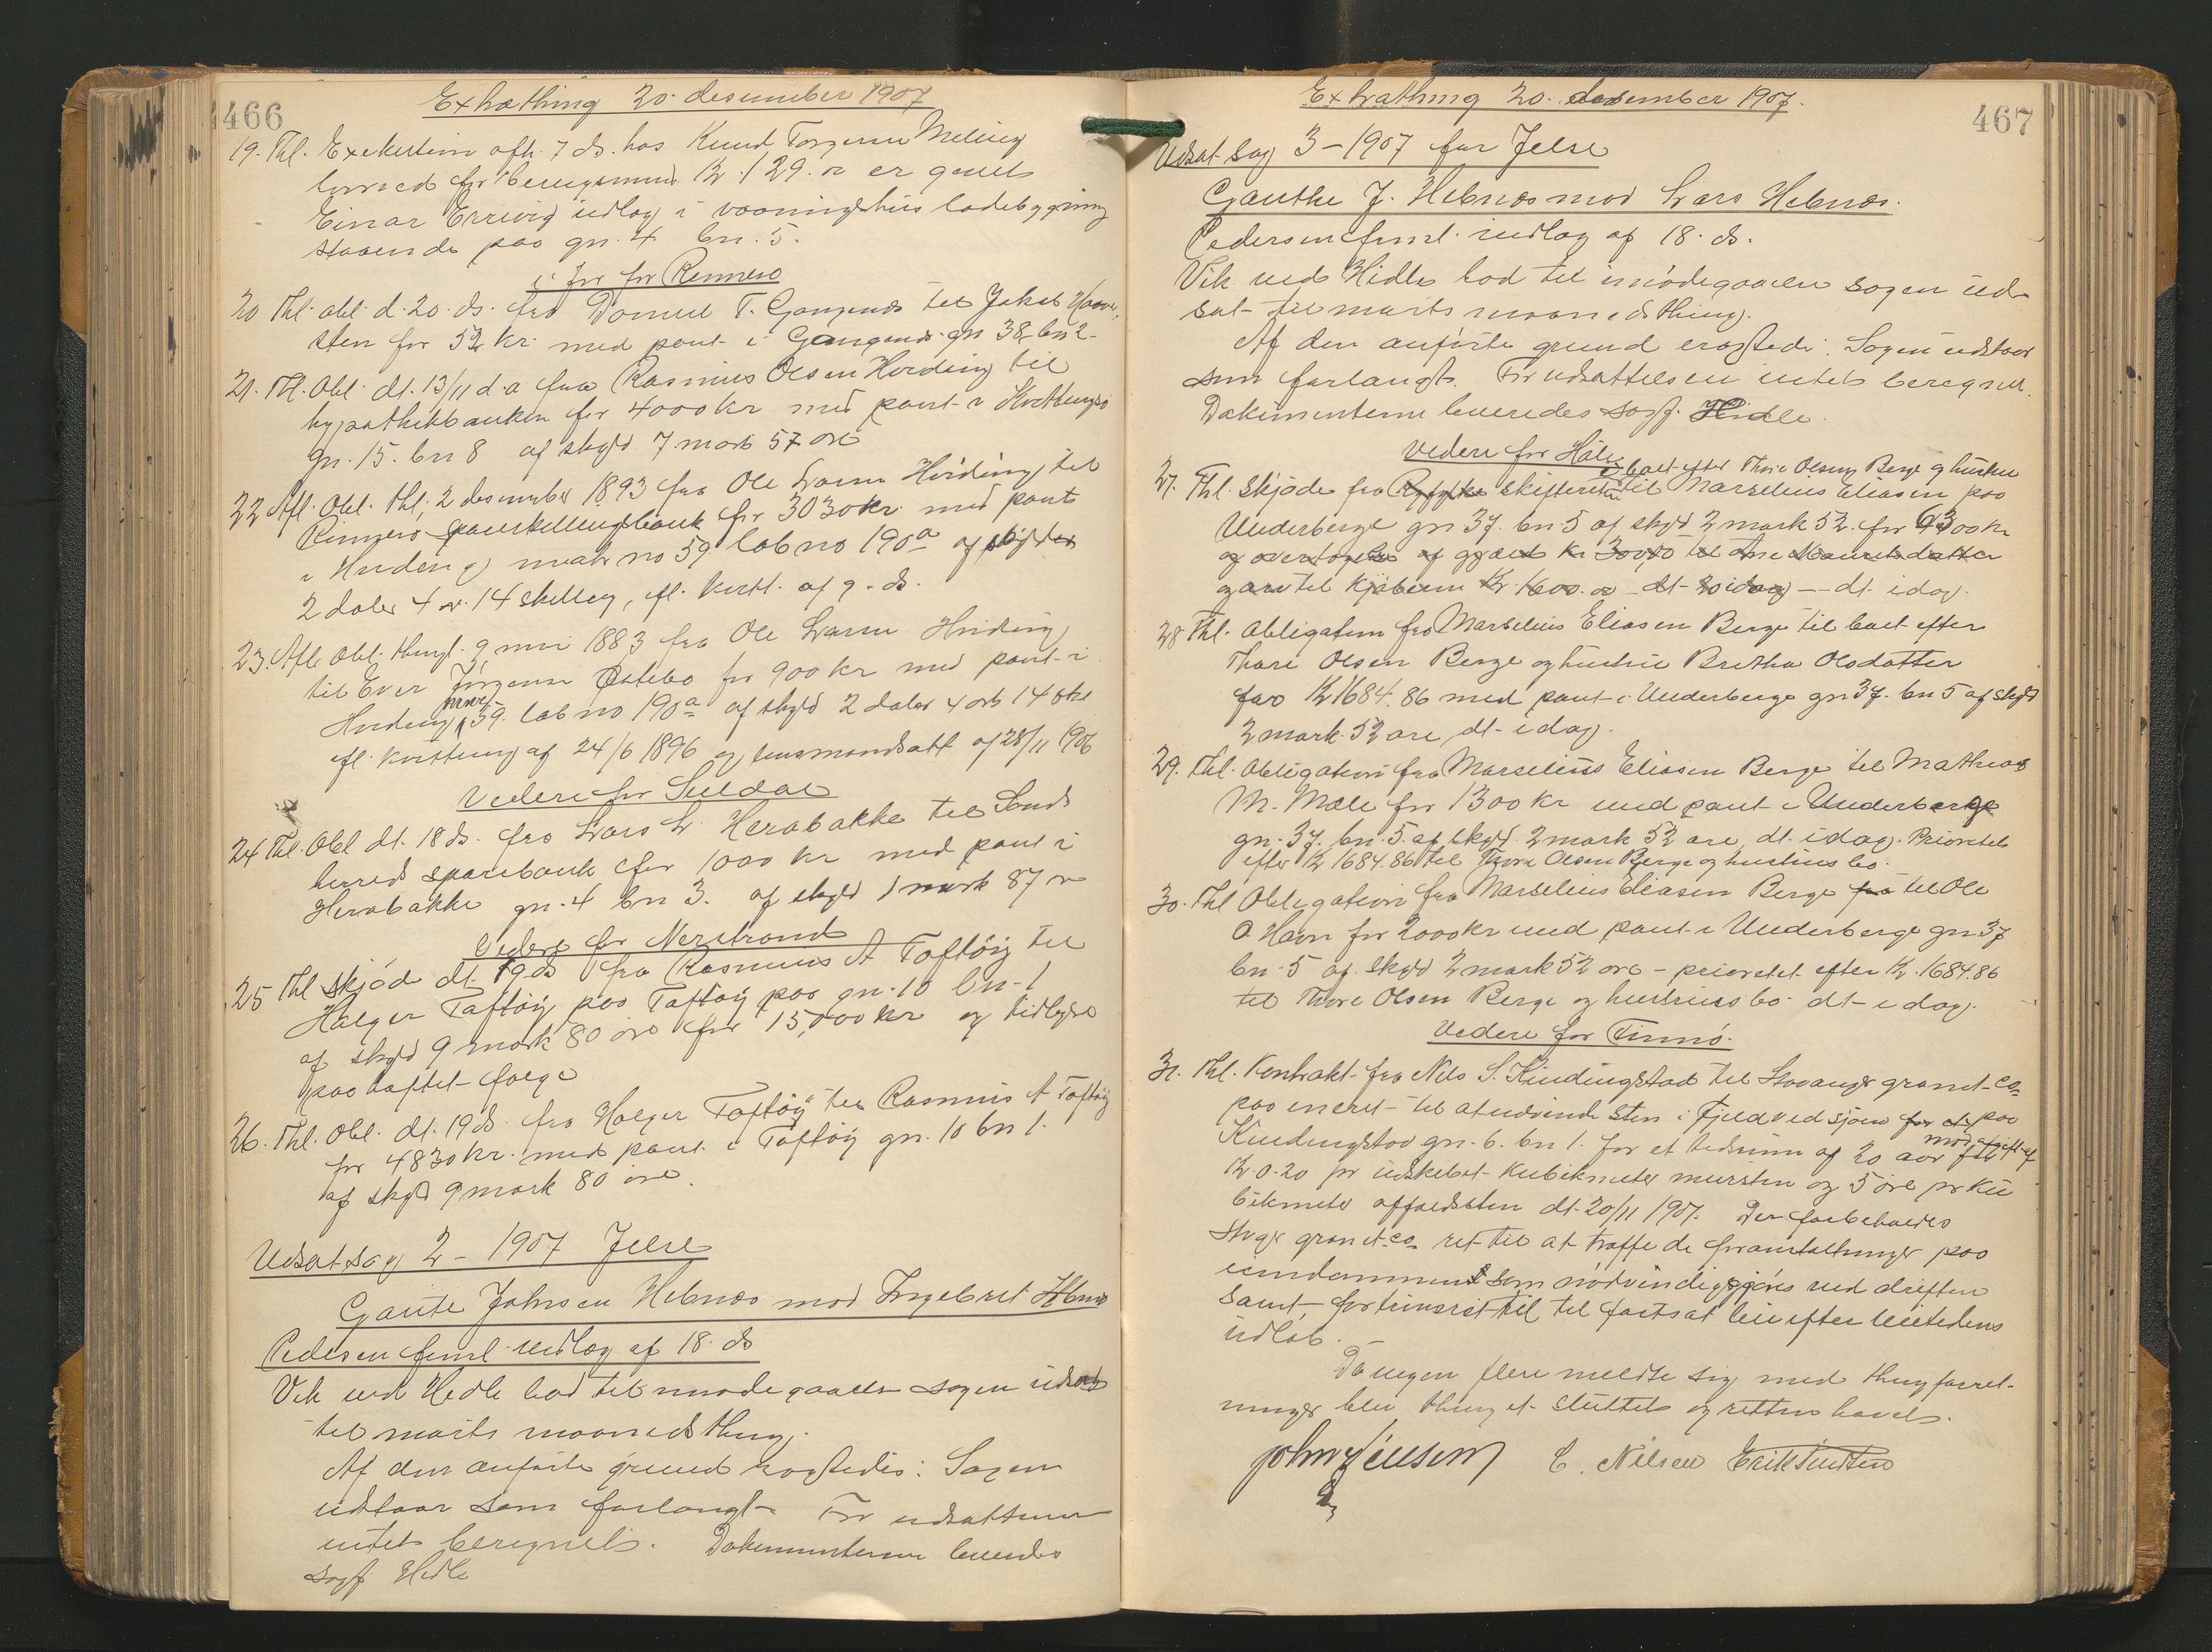 466
Extrathing 20. desember 1907
19. Thl. Exekution afh. 7 ds. hos Knud Torgersen Meling
hvorved for bevegemmel Kr. 129.00 er givet
Einar Erevig udlæg i vaaningshus ladebygning
staaende paa gn. 4 bn. 5.
i for for Rennesø
20 Thl. obl. d. 20. ds. fra Daniel T. Gangenes til Jakob Haave,
sten for 52 kr. med pant i Gangenes gn 38 bn 2-
21. Thl. Obl. dt. 13/11 d.a fra Rasmus Olsen Hviding til
hypothekbanken for 4000 kr med pant i
gn. 15. bn 8 af skyld 7 mark 57 øre
22 Afl. Obl. thl. 2 desember 1893 fra Ole Larsen Hviding til
Rennesø sparskillingsbank for 3030 kr. med pant
i Hviding matr no 59. løb no 190a af skyld
2 daler 4 ort. 14 skilling, ifl. kvitt. af 9. ds.
23. Afl. Obl. thingl. 9 mai 1883 fra Ole Larsen Hviding
til Ever Jørgensen Østebø for 900 kr med pant i
Hviding matr. 59. løb no 190a af skyld 2 daler 4 ort 14 skl
ifl. kvittering af 24/6 1896 og lensmandsatt af 28/11 1906
Videre for Suldal
24 Thl. Obl dt. 18 ds. fra Lars L. Herabakke til Sands
herreds sparebank for 1000 kr med pant i
Herabakke gn. 4 bn 3. af skyld 1 mark 87 øre
Videre for Nerstrand
25 Thl skjøde dt. 19 ds fra Rasmus A Toftøy til
Holger Toftøy paa Toftøy paa gn. 10 bn. 1
af skyld 9 mark 80 øre for 15,000 kr og
paa heftet følge
26. Thl. Obl. dt. 19 ds. fra Holger Toftøy til Rasmus A Toftøy
for 4830 kr. med pant i Toftøy gn. 10 bn 1.
af skyld 9 mark 80 øre.
Udsat sag 2 - 1907 Jelse
Gaute Johnsen Hebnes mod Ingebret Hebnes
Pedersen freml. indlæg af 18. ds
Vik ved Hidle bad til imødegaaelse sagen udsat
til marts maanedsthing.
Af den anførte grund eragtedes: Sagen
udstaar som forlangt. For udsættelsen
intet beregnet. Dokumenterne leveredes
sagf. Hidle
467
Extrathing 20. desember 1907.
Udsat sag 3 - 1907 for Jelse
Gauthe J. Hebnes mod Lars Hebnes.
Pedersen freml. indlæg af 18. ds.
Vik ved Hidle bad til imødegaaelse sagen ud-
sat til marts maanedsthing.
Af den anførte grund eragtedes: Sagen udstaar
som forlangt. For udsættelsen intet beregnet.
Dokumenterne leveredes sagf. Hidle.
Videre for Håle
i boet efter Thore Olsen Berge og hustru
27. Thl. skjøde fra Ryfylke skifteret til Marselius Eliasen paa
Underberge gn 37. bn 5 af skyld 2 mark 52. for 6300 kr
og overtagelse af gjæld kr 3000,00 til Ane Lauritsdatter
til kjøberen Kr. 1600.00 dt. 20 idag - dt. idag.
28 Thl. Obligation fra Marselius Eliasen Berge til boet efter
Thore Olsen Berge og hustru Bertha Olsdatter
for Kr 1684.86 med pant i Underberge gn 37. bn 5 af skyld
2 mark 52 øre, dt. idag.
29. Thl. Obligation fra Marselius Eliasen Berge til Mathias
M. Mæle for 1300 kr med pant i Underberge
gn. 37. bn. 5. af skyld. 2 mark 52 øre, dt. idag. Prioritet
efter Kr 1684.86 til Thore Olsen Berge og hustrus bo.
30. Thl Obligation fra Marselius Eliasen Berge fra til Ole
O Havn for 2000 kr med pant i Underberge gn 37
bn. 5 af skyld 2 mark 52 øre - prioritet efter Kr. 1684.86
til Thore Olsen Berge og hustrus bo. dt. idag.
Videre for Finnø.
31. Thl. Kontrakt fra Nils S. Kindingstad til Stavanger granit-co
paa eneret til at udvinde sten i Fjeld ved sjøen for at paa
Kindingstad gn. 6. bn 1. for et tidsrum af 20 aar mod afgift af
Kr. 0.20 pr udskibet kubikmeter mursten og 5 øre pr ku
bikmeter affaldssten dt. 20/11 1907. Der forbeholdes
Stvgr granit co ret til at træffe de foranstaltninger paa
eiendommen som nødvendiggjøres ved driften
samt fortrinsret til til fortsat leie efter leietidens
udløb. -
Da ingen flere meldte sig med thingforret-
ninger blev thinget sluttet og retten hævet.
John Jensen E. Nilsen Erik Knutsen